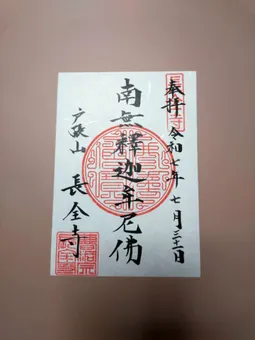 奉拝
令和七年七月三十一日
南無釋迦牟尼佛
戸張山
長全寺